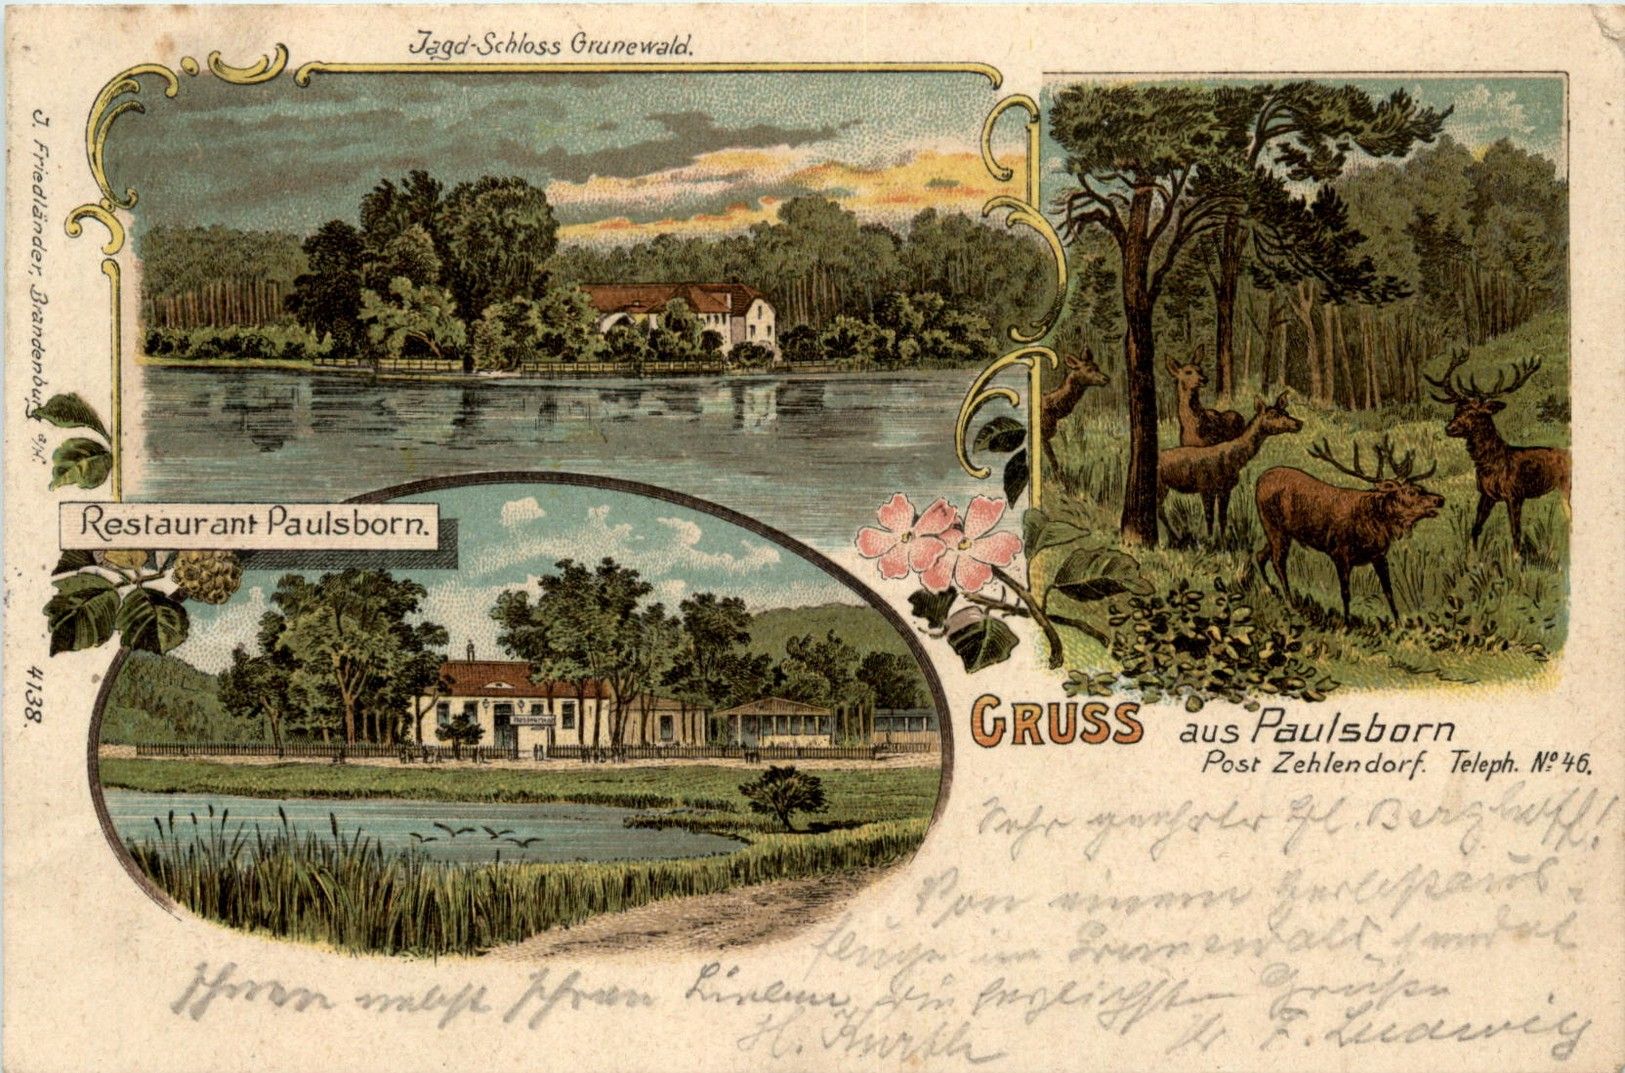 Jagd-Schloss Grunewald.
J. Friedländer, Brandenburg a/H.
4138.
Restaurant Paulsborn.
GRUSS aus Paulsborn
Post Zehlendorf. Teleph. No 46.
Sehr geehrter Hl. Berghoff!
Von einem Herbstaus-
fluge im Grunewald sendet
Ihnen nebst Ihren Lieben die herzlichsten Grüße
H. Kurth F. Ludwig